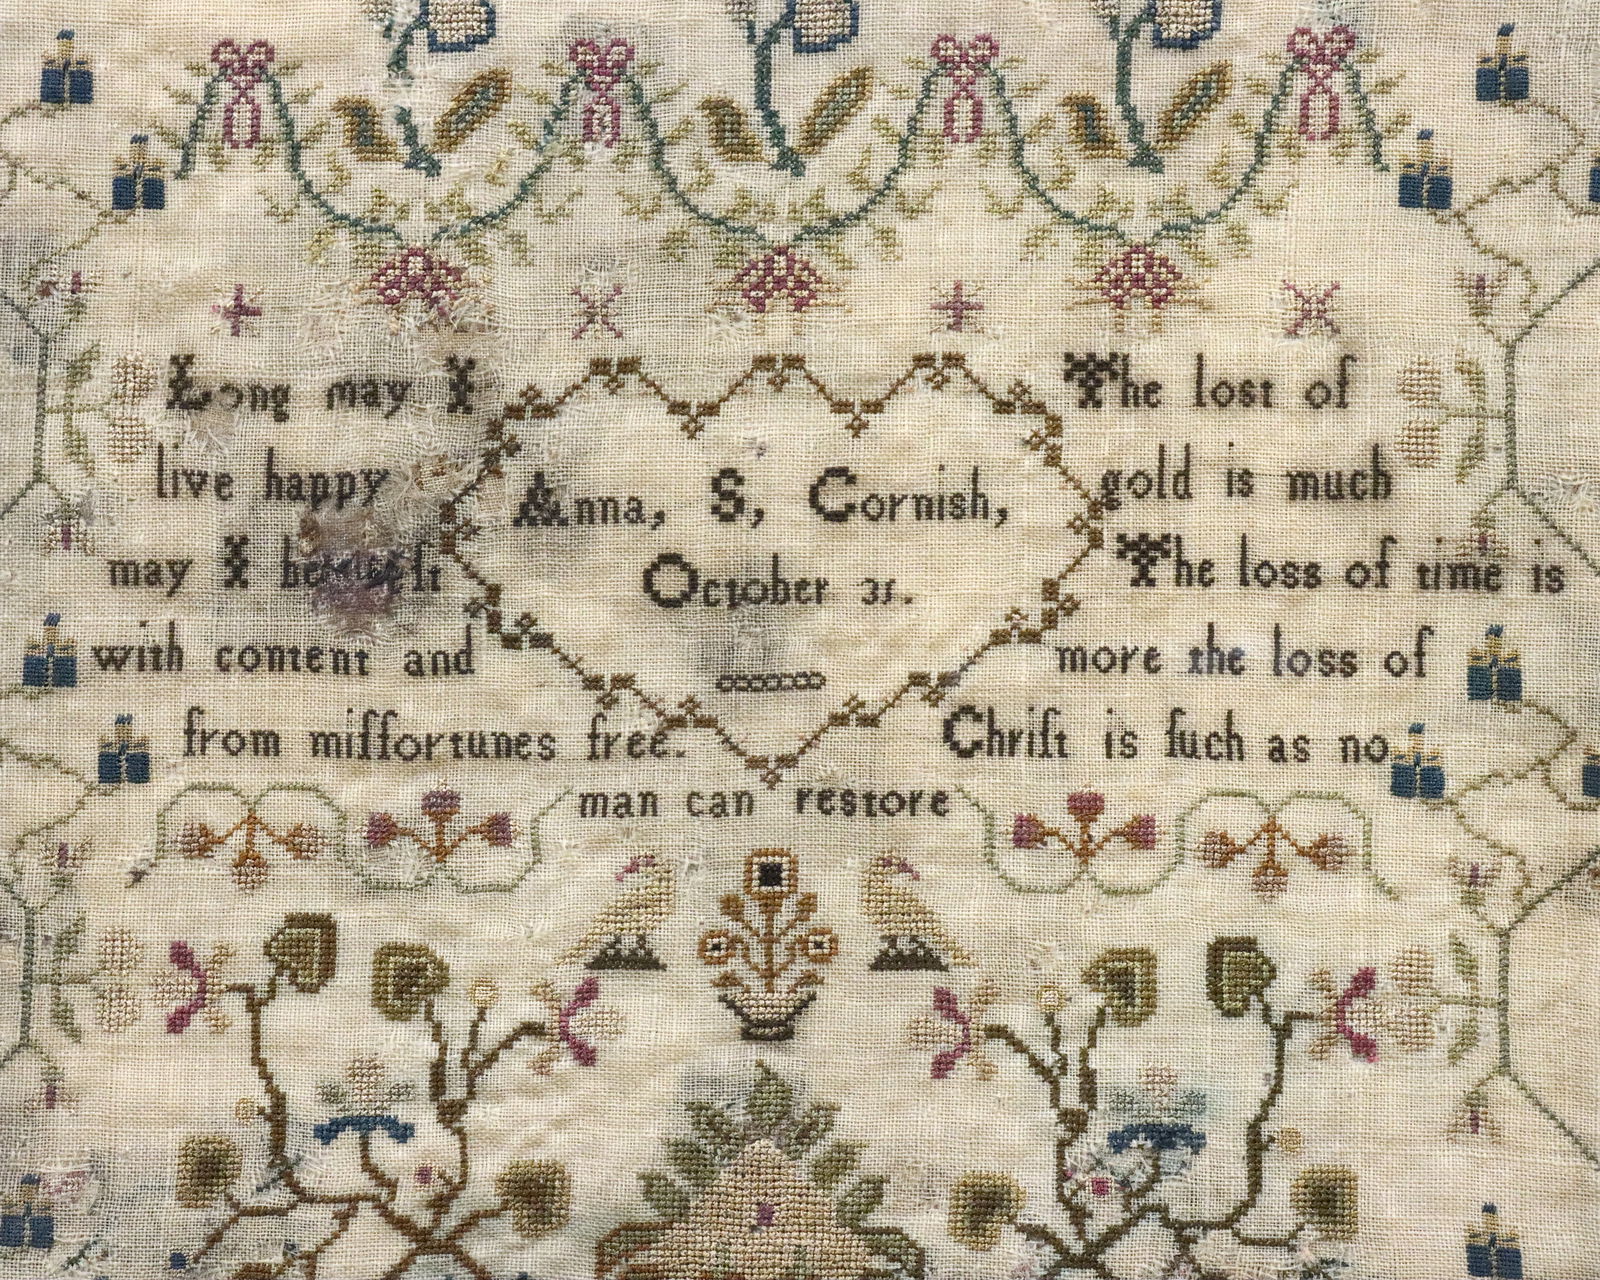 Long may I
live happy
may I be
with content and
from miſfortunes free.
Anna, S, Cornish,
October 31.
The lost of
gold is much
The loss of time is
more the loss of
Chriſt is ſuch as no
man can restore